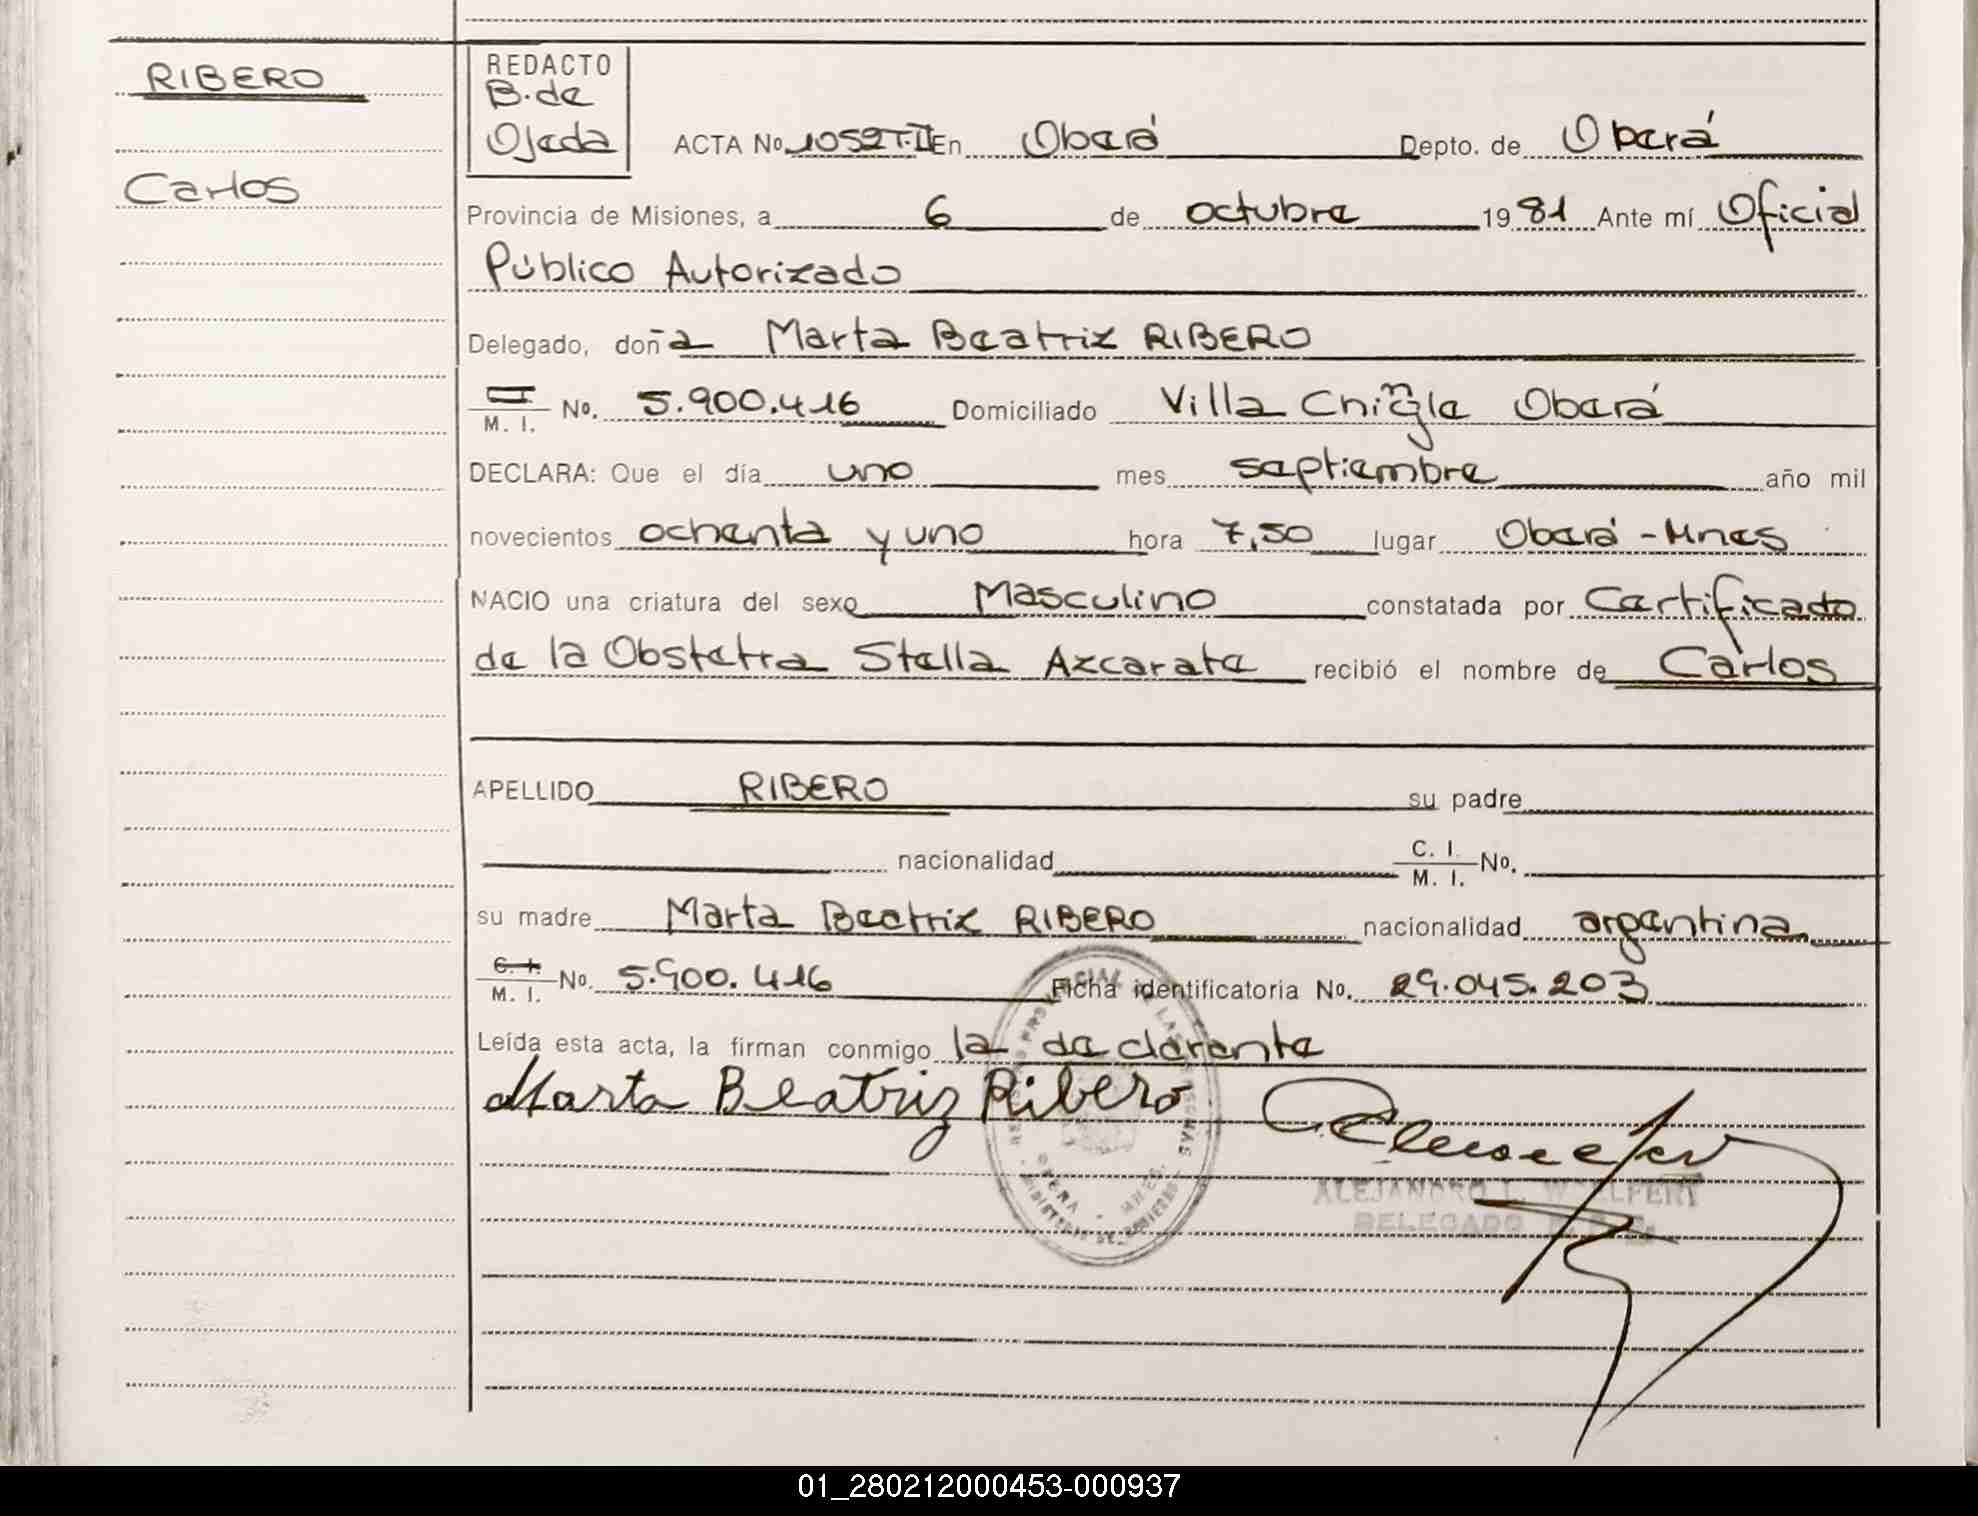 RIBERO
Carlos
REDACTO
B. de
Ojeda
ACTA No. 1052 T. II En Oberá Depto. de Oberá
Provincia de Misiones, a 6 de octubre 1981 Ante mí Oficial
Público Autorizado
Delegado, doña Marta Beatriz RIBERO
M. I. No. 5.900.416 Domiciliado Villa Oberá
DECLARA: Que el día uno mes septiembre año mil
novecientos ochenta y uno hora 7,50 lugar Oberá - Mnes
NACIO una criatura del sexo Masculino constatada por Certificado
de la Obstetra Stella Azcarate recibió el nombre de Carlos
APELLIDO RIBERO su padre
nacionalidad C. I. M. I. No.
su madre Marta Beatriz RIBERO nacionalidad argentina
C. I. M. I. No. 5.900.416 Ficha identificatoria No. 29.045.203
Leída esta acta, la firman conmigo la declarante
Marta Beatriz Ribero
ALEJANDRO L. WOELFERT
DELEGADO
01_280212000453-000937